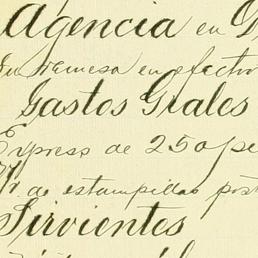 Agencia en
Su remesa en efectivo
Gastos Grales
Express de 250 pe
de estampillas post
Sirvientes